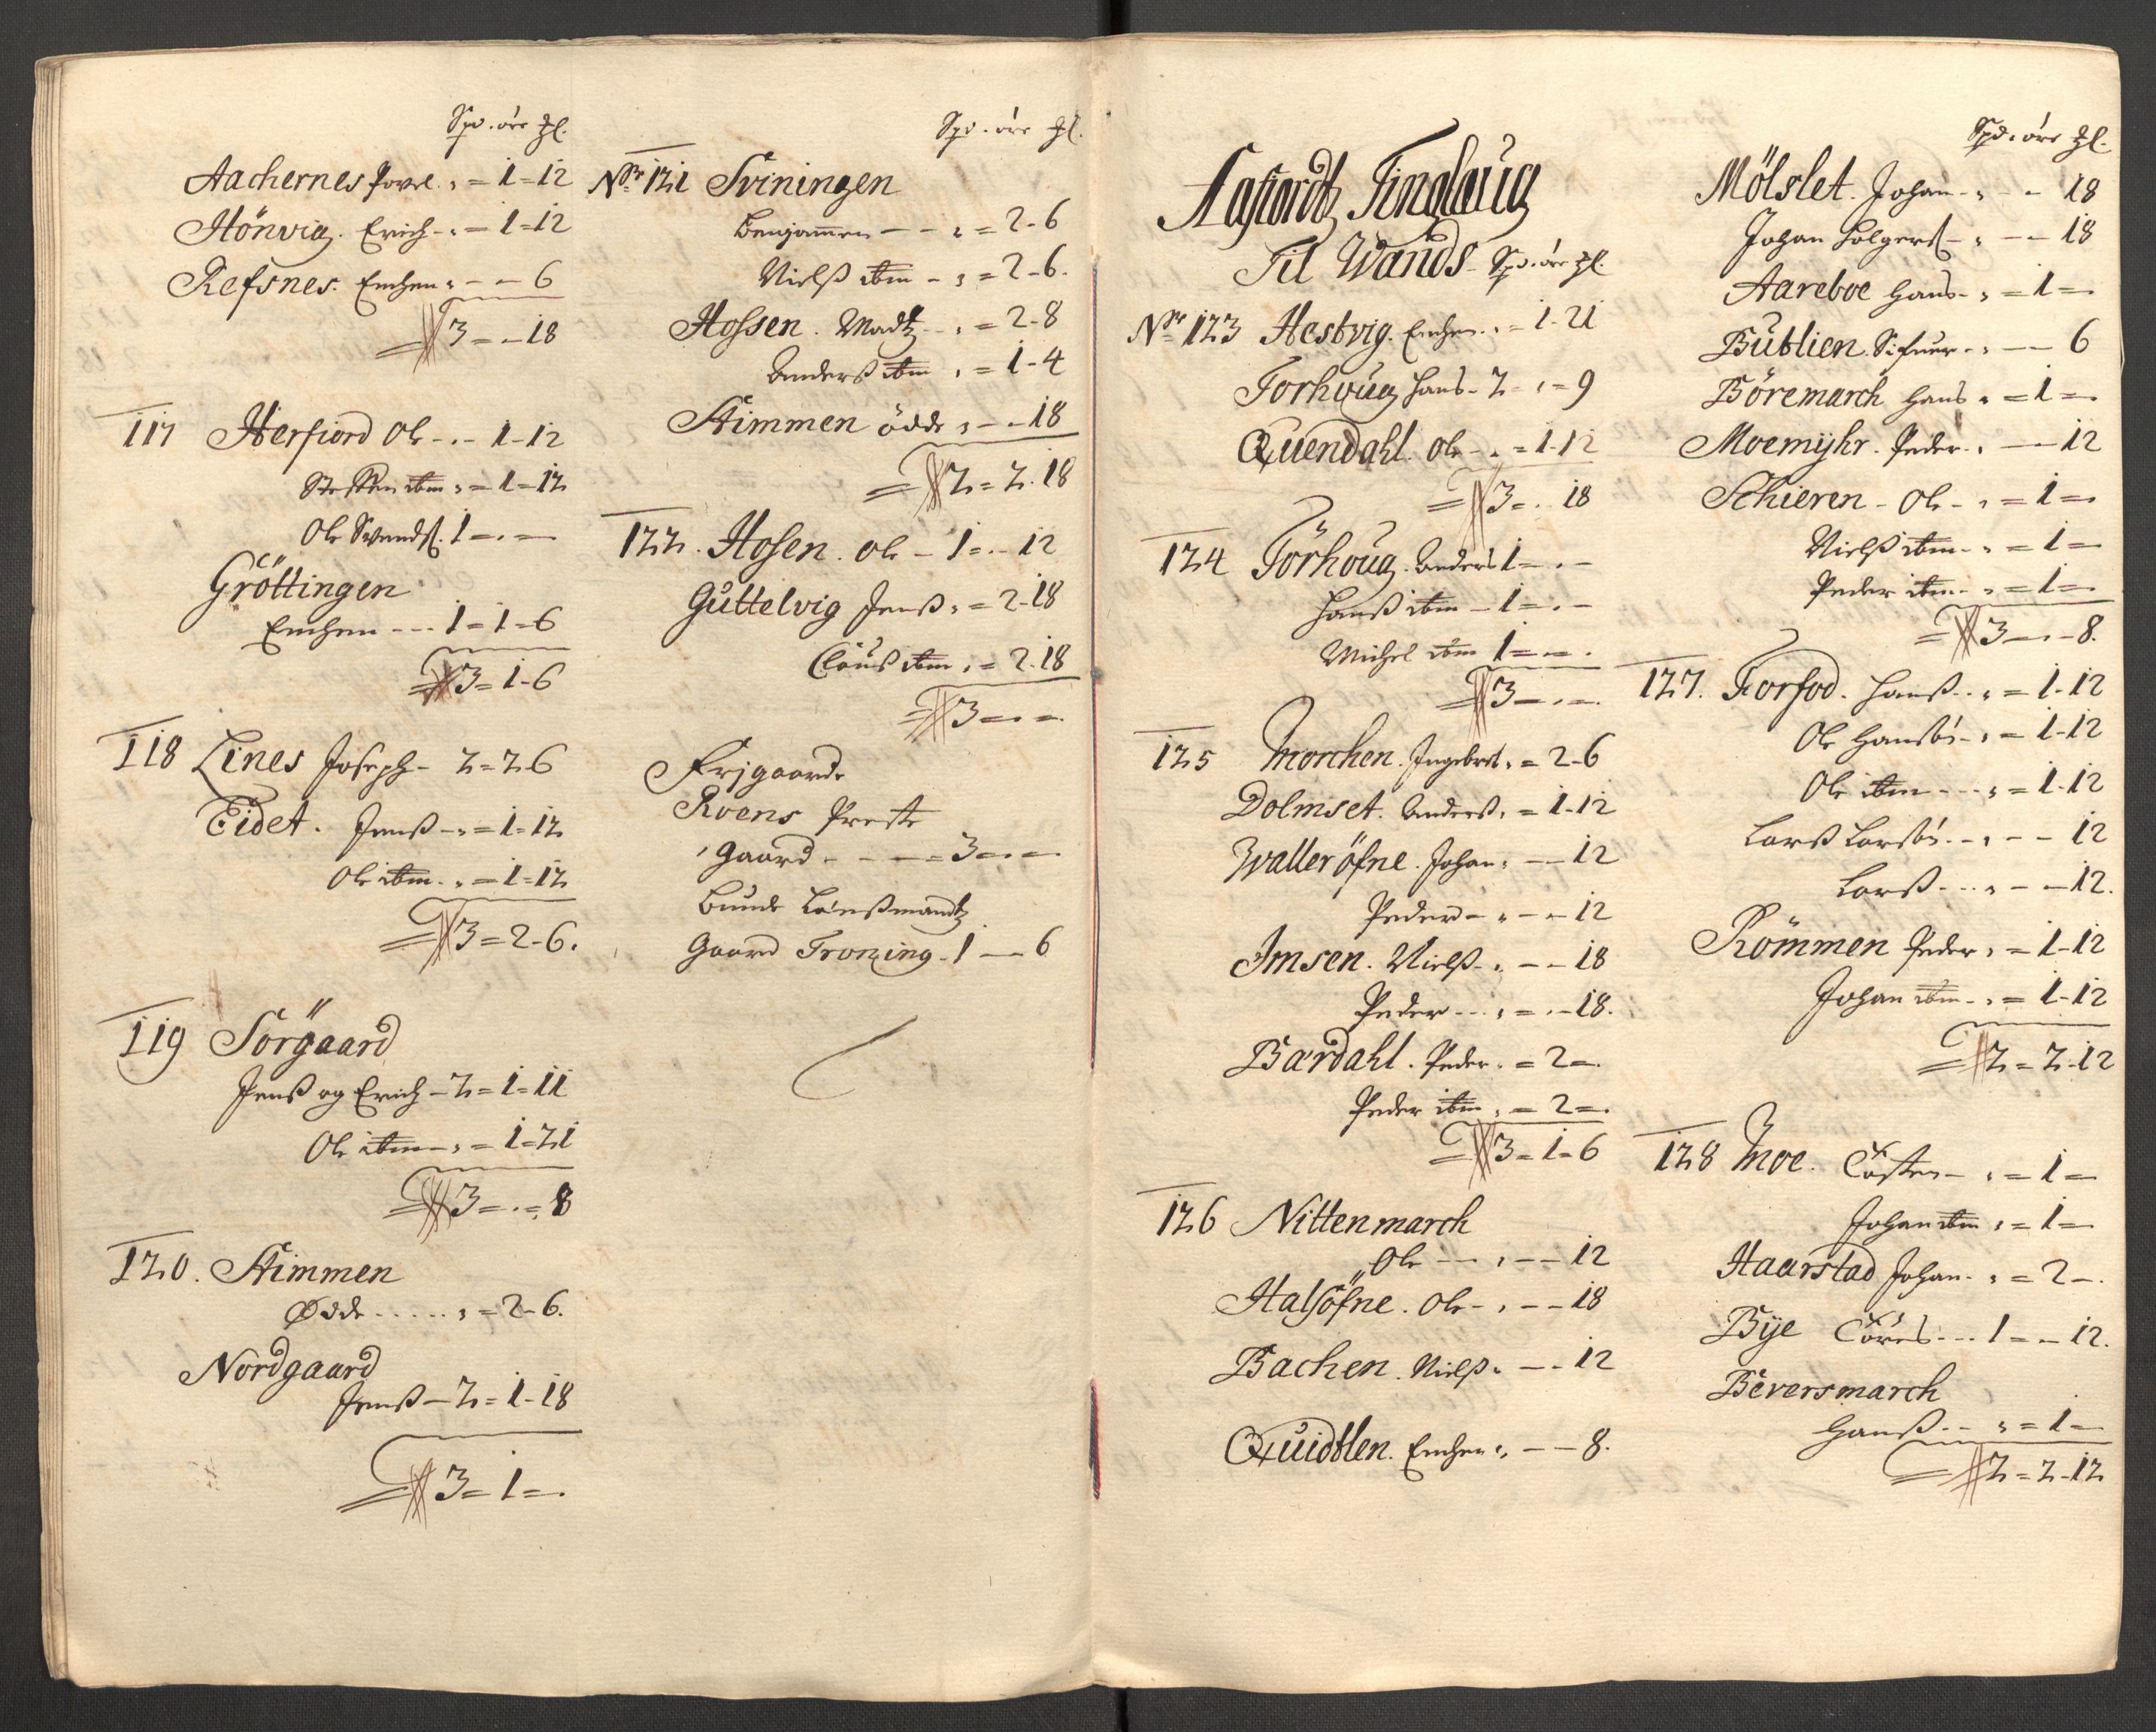 Spd. öre ꝑl.
Aachernes Povel „ = 1 = 12
Hönvig. Erich - „ = 1 = 12
Refsnes. Enchen „ - - 6
3 = - 18
117 Herfiord Ole - „ - 1 - 12
Steffen ibm „ = 1 = 12
Ole Svends. 1 = „ -
Gröttingen
Enchen - - - 1 = 1 = 6
3 = 1 - 6
118 Lines Joseph - 2 = 2 - 6
Eidet. Jenß - „ = 1 = 12
Ole ibm - „ = 1 = 12
3 = 2 - 6.
119 Sörgaard
Jenß og Erich - 2 = 1 = 11
Ole ibm - „ = 1 = 21
3 = „ = 8
120. Stimmen
Ödde ..... „ = 2 - 6.
Nordgaard
Jenß - 2 = 1 - 18
3 = 1 = „
Spd. öre
No 121 Sviningen
Benjamen - - „ = 2 - 6
Nielß ibm - „ = 2 - 6.
Hossen. Madtz - „ = 2 - 8
Anderß ibm „ = 1 - 4
Stimmen ödde „ - - 18
2 = 2 - 18
122. Hosen. Ole - 1 = „ - 12
Guttelvig Jenß „ = 2 - 18
Clauß ibm „ = 2 - 18
3 = „ =
Frjgaarde
Roens Preste
Gaard - - - = 3 = „ =
Bunde Länßmandtz
Gaard Froning - 1 - - 6
Aafiordtz Tinglaug
Til Wands Spd. öre
No 123 Hestvig. Enchen „ = 1 - 21
Torhoug Hans - 2 = „ = 9
Quendahl. Ole - „ = 1 - 12
3 = „ 18
124 Törhoug. Anders 1 = „ -
Hanß ibm - 1 = „ -
Michel ibm 1 = - „
3 = „ =
125 Morchen. Ingebret „ = 2 - 6
Dolmset. Anderß „ = 1 - 12
Walleröfne. Johan „ - - 12
Peder - „ - - 12
Imsen. Nielß - „ - - 18
Peder - - - „ = „ - 18.
Bærdahl. Peder „ = 2 = „
Peder ibm „ = 2 = „
3 = 1 - 6
126 Nittenmarch
Ole - - „ - - 12
Halsöfne. Ole - „ - - 18
Bachen. Nielß „ - - 12
Quidtlen. Enchen „ - - 8.
Spd. öre
Mölslet. Johan - „ - - 18
Johan Holgers. - „ - - 18
Aareboe Hans - „ = 1 =
Butlien. Sifuer - „ - - 6
Böremarch Hans „ = 1 = „
Moemyhr. Peder - „ - - 12
Schieren - Ole - „ = 1 = „
Nielß ibm - „ = 1 =
Peder ibm - „ = 1 = „
3 = „ - 8.
127. Forfod. Hanß - „ = 1 - 12
Ole Hansön - „ = 1 - 12
Ole ibm - - - „ = 1 - 12
Larß Larsön - - „ - - 12
Larß - - - „ - - 12.
Römmen Peder „ = 1 - 12
Johan ibm - „ = 1 - 12
2 = 2 - 12
128 Moe. Cösten - „ = 1 =
Johan ibm „ = 1 =
Haarstad Johan - „ = 2 - „
Bye Cörels - - - 1 = - 12.
Beversmarch
Hanß - - „ = 1 =
2 = 2 - 12